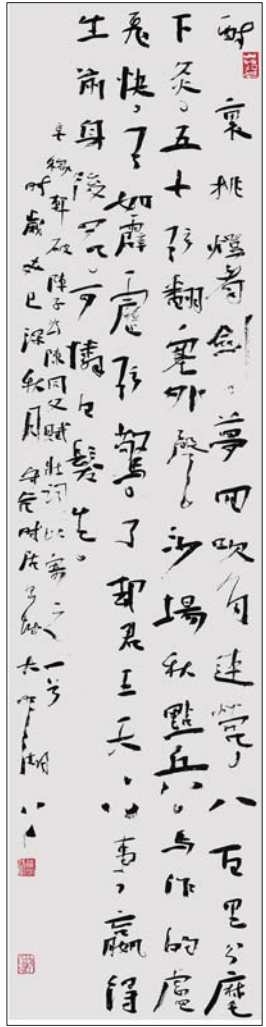 醉裏挑燈看劍、夢回吹角連營、八百里分麾
下炙。五十弦翻塞外聲。沙場秋點兵。馬作的盧
飛快、弓如霹靂弦驚。了却君王天下事、贏得
生前身後名。可憐白髮生。
辛稼軒破陣子為陳同父賦壯詞以寄之一首
時歲 深秋月